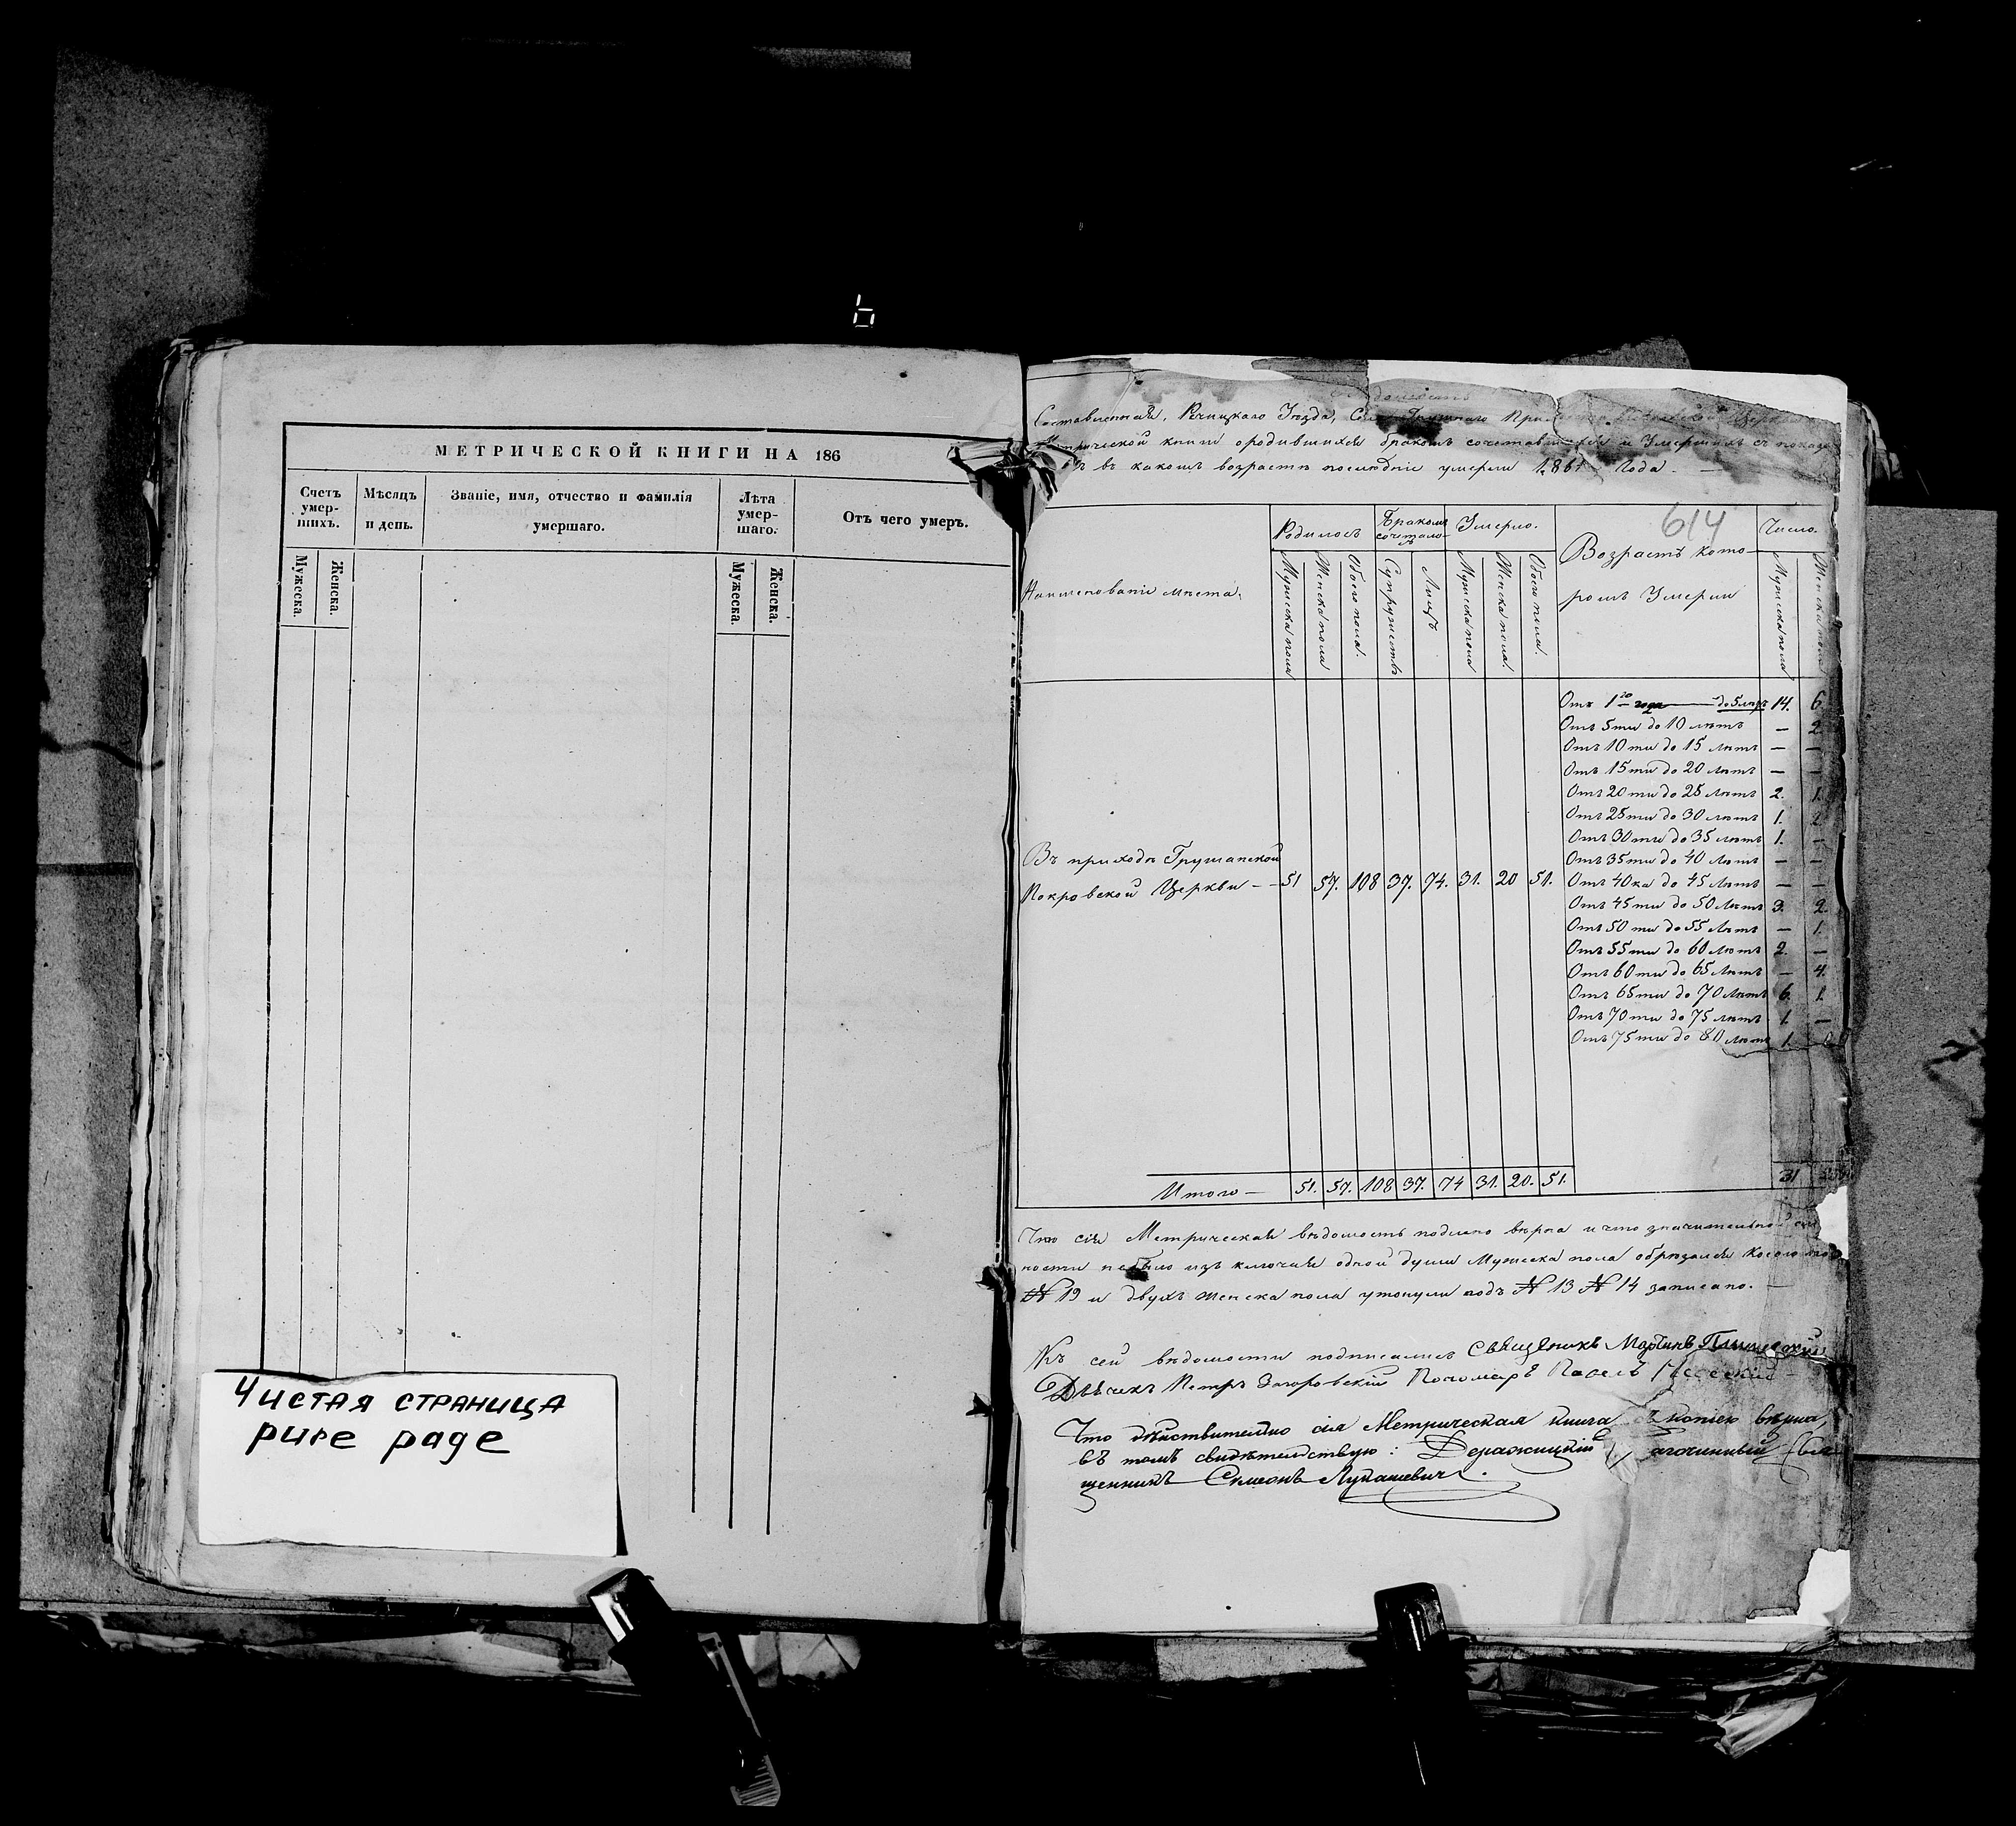 МЕТРИЧЕСКОЙ КНИГИ НА 186
Счетъ умер-шихъ.
Мѣсяцъ и день.
Званіе, имя, отчество и фамилія умершаго.
Лѣта умер-шаго.
Отъ чего умеръ.
Мужеска.
Женска.
Мужеска.
Женска.
Чистая страница
pure page
Составленная, Рѣчицкаго Уѣзда,
книги ородившихся бракомъ сочетавшихся и Умершихъ съ
въ какомъ возрастѣ послѣдніе умерли 1861 Года. —
614
Наименованіе мѣста.
Родилось
Бракомъ сочетало-
Умерло.
Возрастъ кото-
рыхъ Умерли
Число.
Мужеска пола
Женска пола
Обоего пола.
Супружествъ
Лицъ
Мужеска пола
Женска пола.
Обоего пола.
Мужеска пола
Женска пола
Отъ 1го года — до 5 лѣтъ 14. 6.
Отъ 5ти до 10 лѣтъ — 2.
Отъ 10ти до 15 лѣтъ — —
Отъ 15ти до 20 лѣтъ — —
Отъ 20ти до 25 лѣтъ 2. 1.
Отъ 25ти до 30 лѣтъ 1. 2
Отъ 30ти до 35 лѣтъ 1. —
Отъ 35ти до 40 лѣтъ — —
Въ приходѣ Грушанской
Покровской Церкви — 51 57. 108 37. 74. 31. 20 51.
Отъ 40ка до 45 лѣтъ — —
Отъ 45ти до 50 лѣтъ 3. 2.
Отъ 50ти до 55 лѣтъ — 1.
Отъ 55ти до 60 лѣтъ 2. —
Отъ 60ти до 65 лѣтъ — 4.
Отъ 65ти до 70 лѣтъ 6. 1.
Отъ 70ти до 75 лѣтъ 1. —
Отъ 75ти до 80 лѣтъ 1.
Итого — 51. 57. 108 37. 74 31. 20. 51. 31
Что сія Метрическая вѣдомость подлино вѣрна и что значительной
ности небыло изъ ключая одной души Мужеска пола обрѣзался косою
№ 19 и двухъ женска пола утонули подъ № 13 № 14 записано. —
Къ сей вѣдомости подписались Священикъ
Дьячекъ Петръ Загоровскій Пономаръ Павелъ
Что дѣйствительно сія Метрическая книга съ копіею вѣрна,
въ томъ свидѣтельствую:
щенникъ Симеонъ Лукашевичъ.